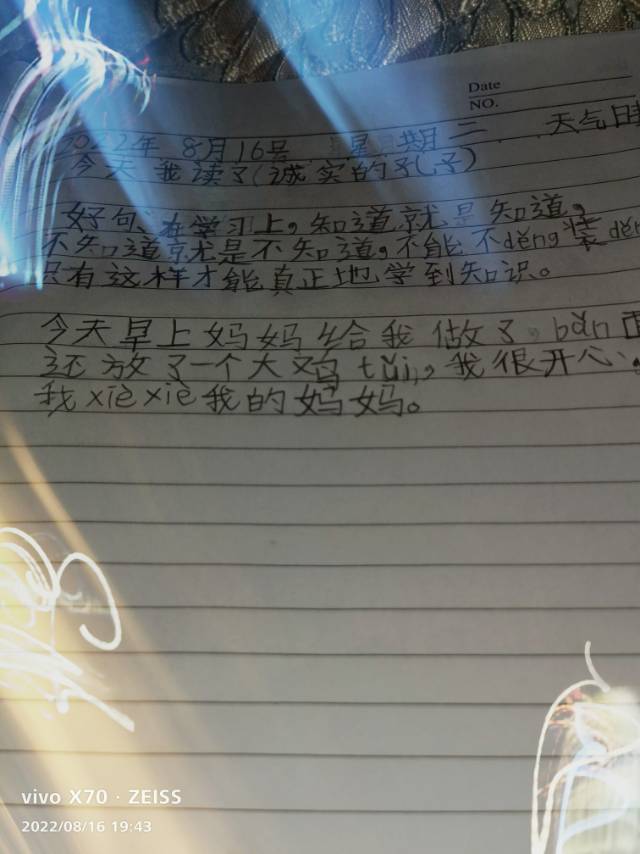 Date
NO.
2022年 8月16号 星期二 天气日
今天我读了(诚实的孔子)
好句:在学习上,知道就是知道,
不知道就是不知道,不能不děng装děn
只有这样才能真正地学到知识。
今天早上妈妈给我做了,bàn面
还放了一个大鸡tuǐ,我很开心。
我xièxiè我的妈妈。
vivo X70 · ZEISS
2022/08/16 19:43